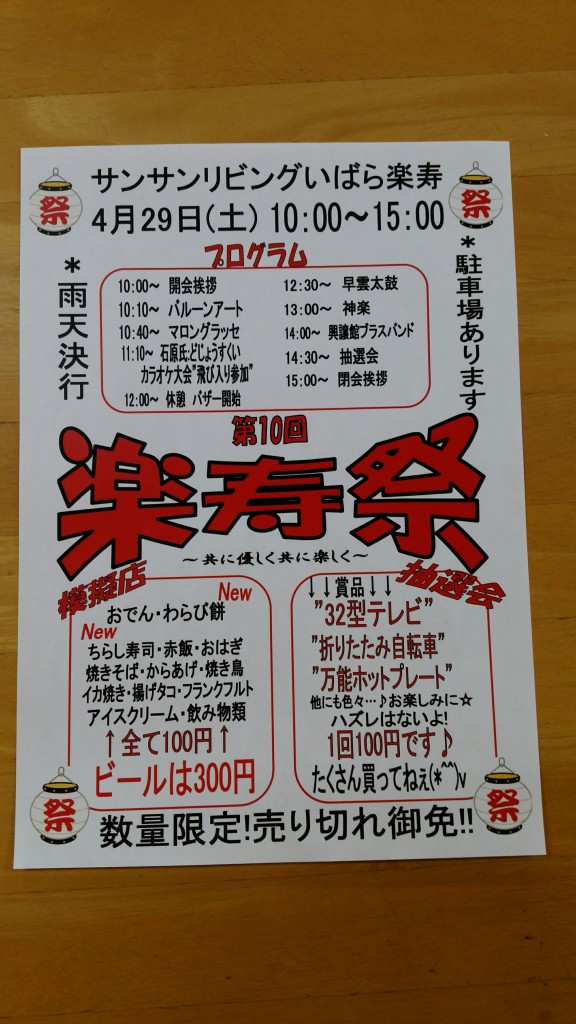 サンサンリビングいばら楽寿
4月29日(土) 10:00～15:00
祭
祭
*雨天決行
*駐車場あります
プログラム
10:00～ 開会挨拶
10:10～ バルーンアート
10:40～ マロングラッセ
11:10～ 石原氏:どじょうすくい
カラオケ大会"飛び入り参加"
12:00～ 休憩 バザー開始
12:30～ 早雲太鼓
13:00～ 神楽
14:00～ 興譲館ブラスバンド
14:30～ 抽選会
15:00～ 閉会挨拶
第10回
楽寿祭
～共に優しく共に楽しく～
模擬店
New
おでん・わらび餅
New
ちらし寿司・赤飯・おはぎ
焼きそば・からあげ・焼き鳥
イカ焼き・揚げタコ・フランクフルト
アイスクリーム・飲み物類
↑全て100円↑
ビールは300円
抽選会
↓↓賞品↓↓
"32型テレビ"
"折りたたみ自転車"
"万能ホットプレート"
他にも色々…♪お楽しみに☆
ハズレはないよ!
1回100円です♪
たくさん買ってねぇ(*^^)v
祭
祭
数量限定!売り切れ御免!!